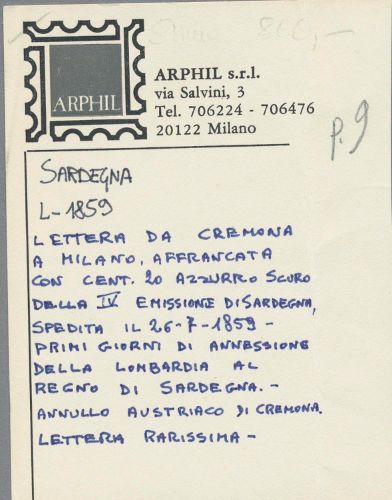 800,-
ARPHIL
ARPHIL s.r.l.
via Salvini, 3
Tel. 706224 - 706476
20122 Milano
p. 9
SARDEGNA
L-1859
LETTERA DA CREMONA
A MILANO, AFFRANCATA
CON CENT. 20 AZZURRO SCURO
DELLA IV EMISSIONE DI SARDEGNA,
SPEDITA IL 26-7-1859-
PRIMI GIORNI DI ANNESSIONE
DELLA LOMBARDIA AL
REGNO DI SARDEGNA.-
ANNULLO AUSTRIACO DI CREMONA.
LETTERA RARISSIMA-